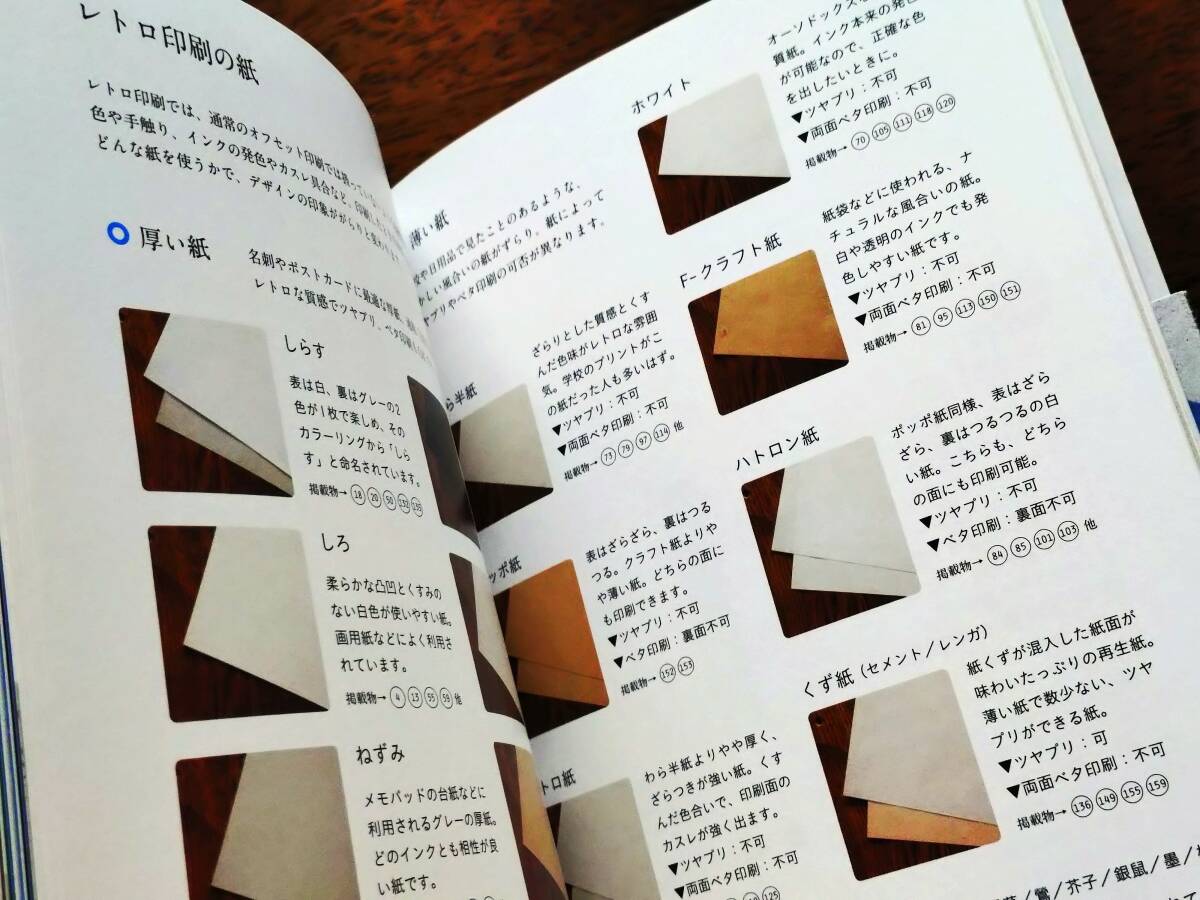 レトロ印刷の紙
レトロ印刷では、通常のオフセット印刷では扱ってい
色や手触り、インクの発色やカスレ具合など、印刷した
どんな紙を使うかで、デザインの印象ががらりと変わります
厚い紙
名刺やポストカードに最適な
レトロな質感でツヤプリ、ベタ印刷も
しらす
表は白、裏はグレーの2
色が1枚で楽しめ、その
カラーリングから「しら
す」と命名されています。
掲載物→ 18 20 50 132
しろ
柔らかな凸凹とくすみの
ない白色が使いやすい紙。
画用紙などによく利用さ
れています。
掲載物→ 4 13 55 59 他
ねずみ
メモパッドの台紙などに
利用されるグレーの厚紙。
どのインクとも相性が良
い紙です。
薄い紙
や日用品で見たことのあるような、
かしい風合いの紙がずらり。紙によって
ヤプリやベタ印刷の可否が異なります。
ら半紙
ざらりとした質感とくす
んだ色味がレトロな雰囲
気。学校のプリントがこ
の紙だった人も多いはず。
▼ツヤプリ：不可
▼両面ベタ印刷：不可
掲載物→ 73 79 97 114 他
ッポ紙
表はざらざら、裏はつる
つる。クラフト紙よりや
や薄い紙。どちらの面に
も印刷できます。
▼ツヤプリ：不可
▼ベタ印刷：裏面不可
掲載物→ 152 153
トロ紙
わら半紙よりやや厚く、
ざらつきが強い紙。くす
んだ色合いで、印刷面の
カスレが強く出ます。
▼ツヤプリ：不可
▼両面ベタ印刷：不可
125
ホワイト
オーソドックスな
質紙。インク本来の発色
が可能なので、正確な色
を出したいときに。
▼ツヤプリ：不可
▼両面ベタ印刷：不可
掲載物→ 70 105 111 118 120
F-クラフト紙
紙袋などに使われる、ナ
チュラルな風合いの紙。
白や透明のインクでも発
色しやすい紙です。
▼ツヤプリ：不可
▼両面ベタ印刷：不可
掲載物→ 81 95 113 150 151
ハトロン紙
ポッポ紙同様、表はざら
ざら、裏はつるつるの白
い紙。こちらも、どちら
の面にも印刷可能。
▼ツヤプリ：不可
▼ベタ印刷：裏面不可
掲載物→ 84 85 101 103 他
くず紙（セメント／レンガ）
紙くずが混入した紙面が
味わいたっぷりの再生紙。
薄い紙で数少ない、ツヤ
プリができる紙。
▼ツヤプリ：可
▼両面ベタ印刷：不可
掲載物→ 136 149 155 159
／鶯／芥子／銀鼠／墨／